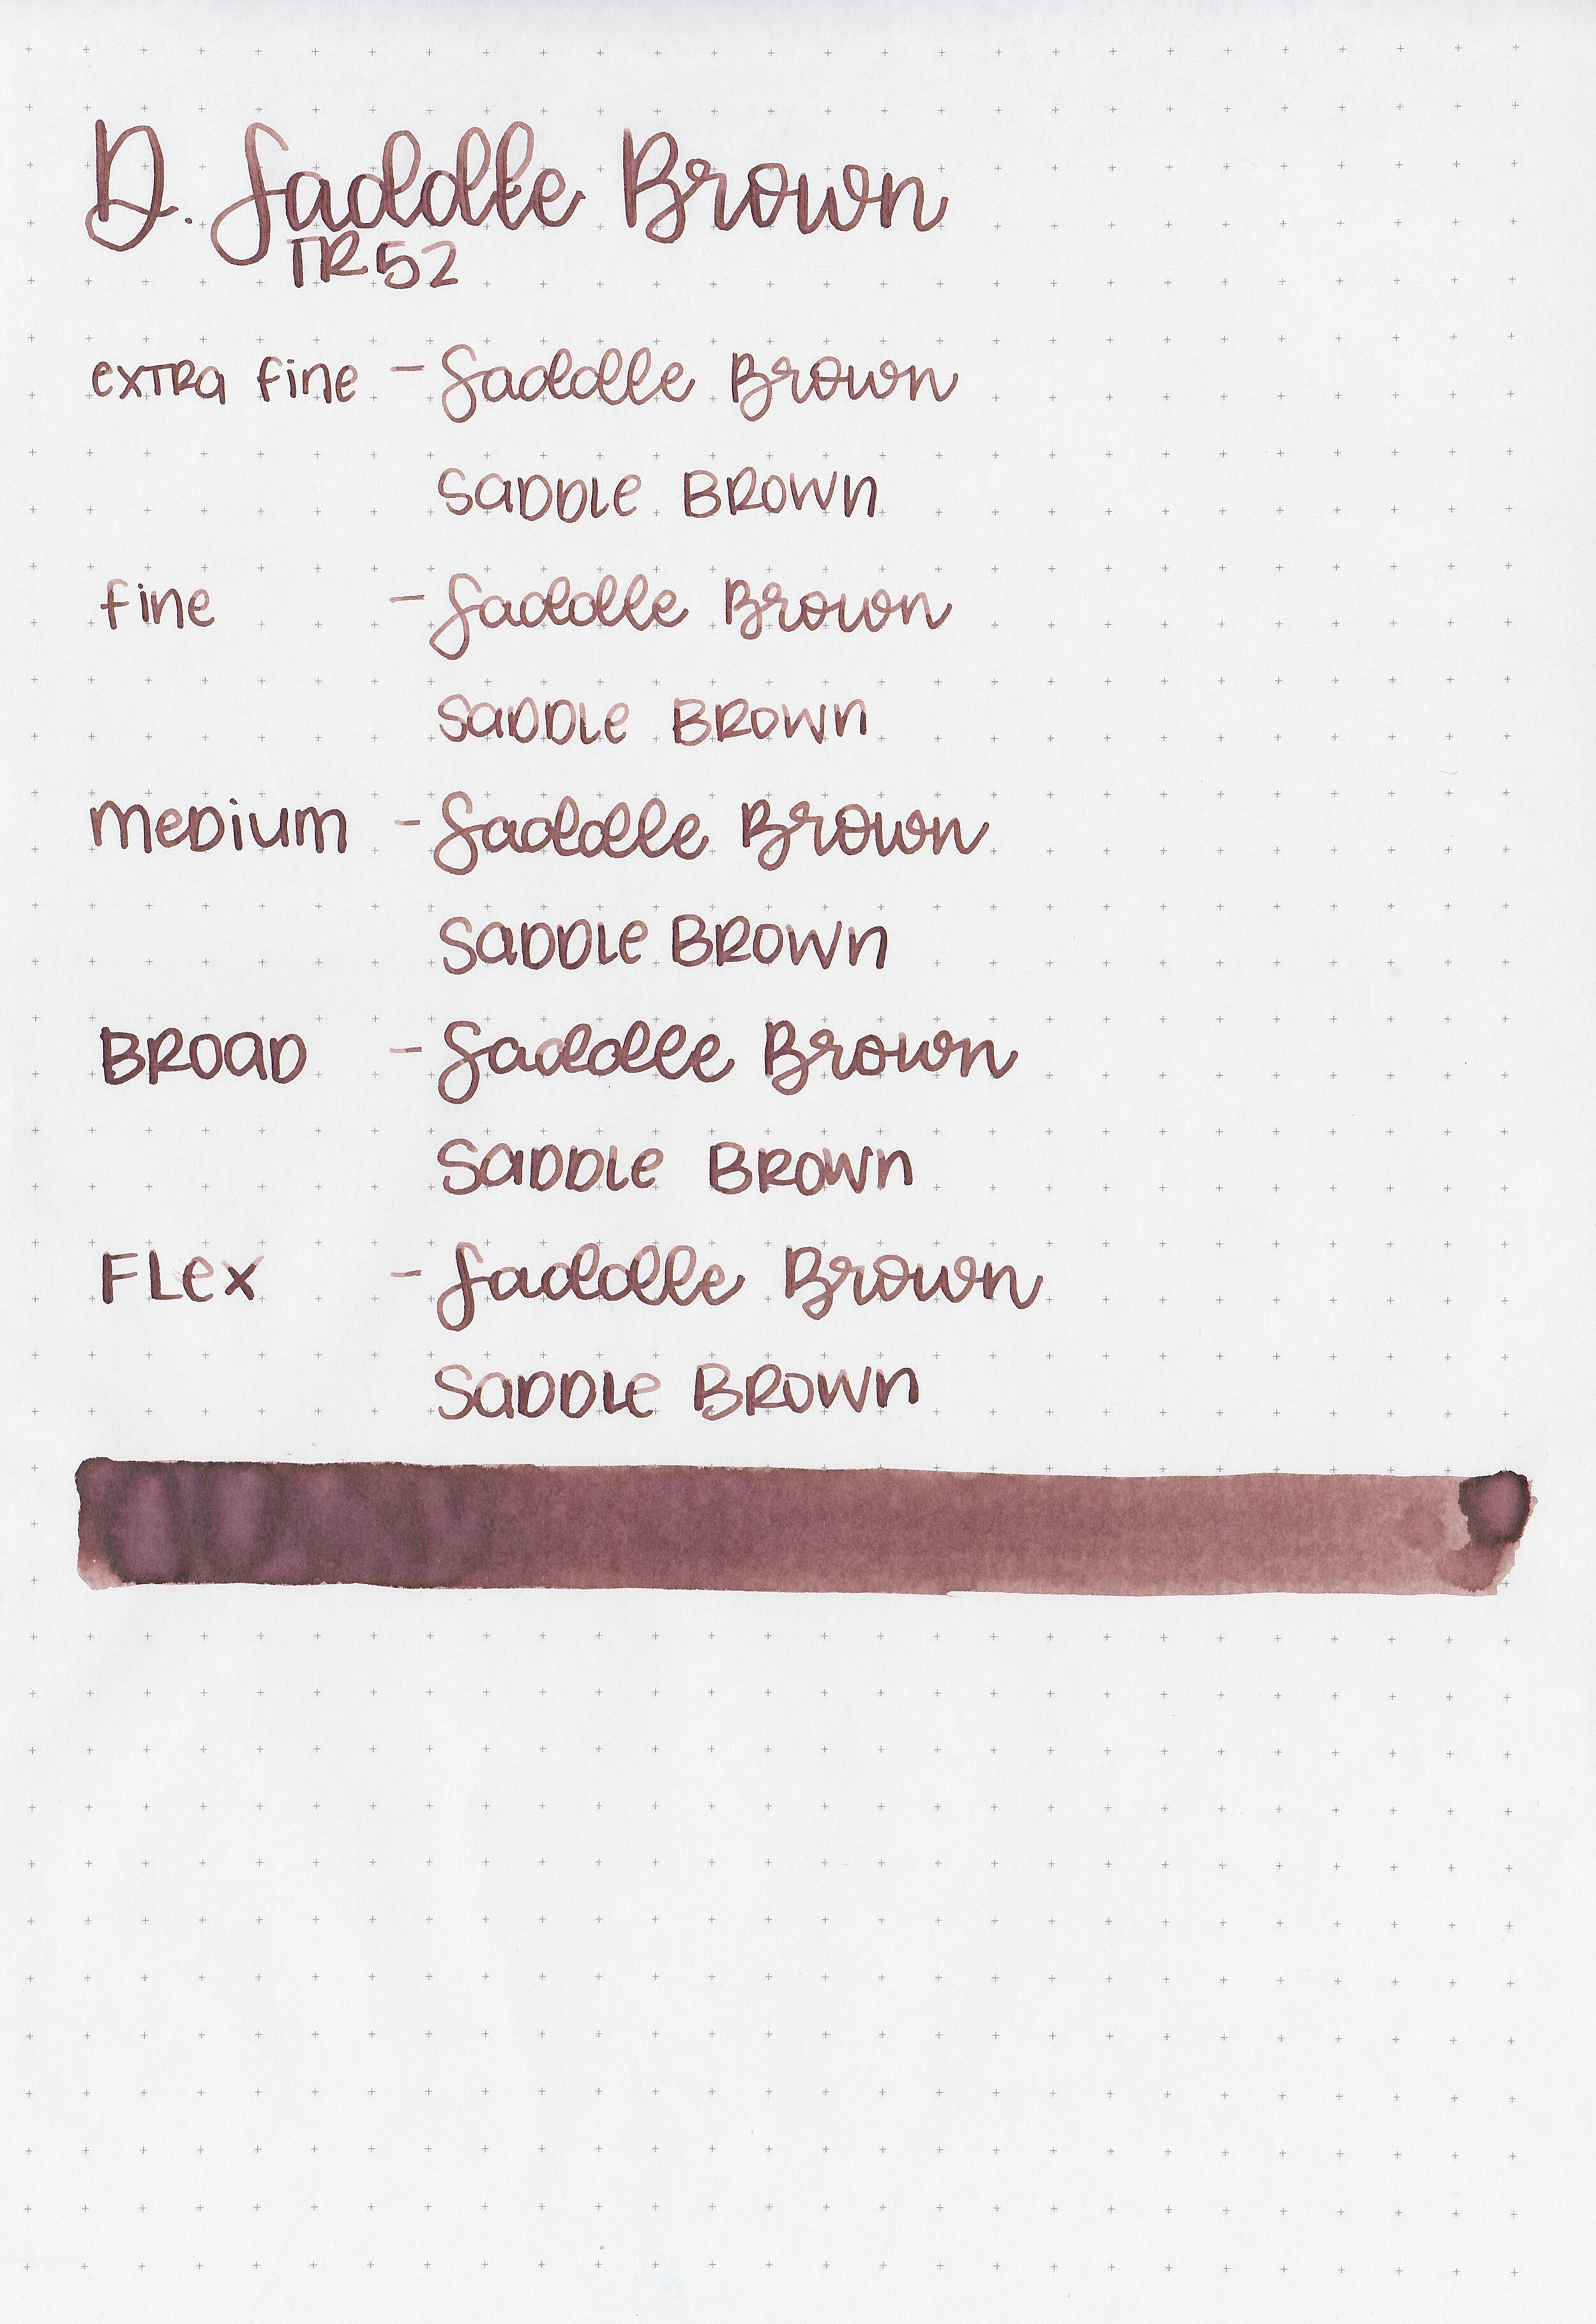 D. Saddle Brown
TR52
extra fine - Saddle Brown
Saddle Brown
fine - Saddle Brown
Saddle Brown
Medium - Saddle Brown
Saddle Brown
Broad - Saddle Brown
Saddle Brown
Flex - Saddle Brown
Saddle Brown